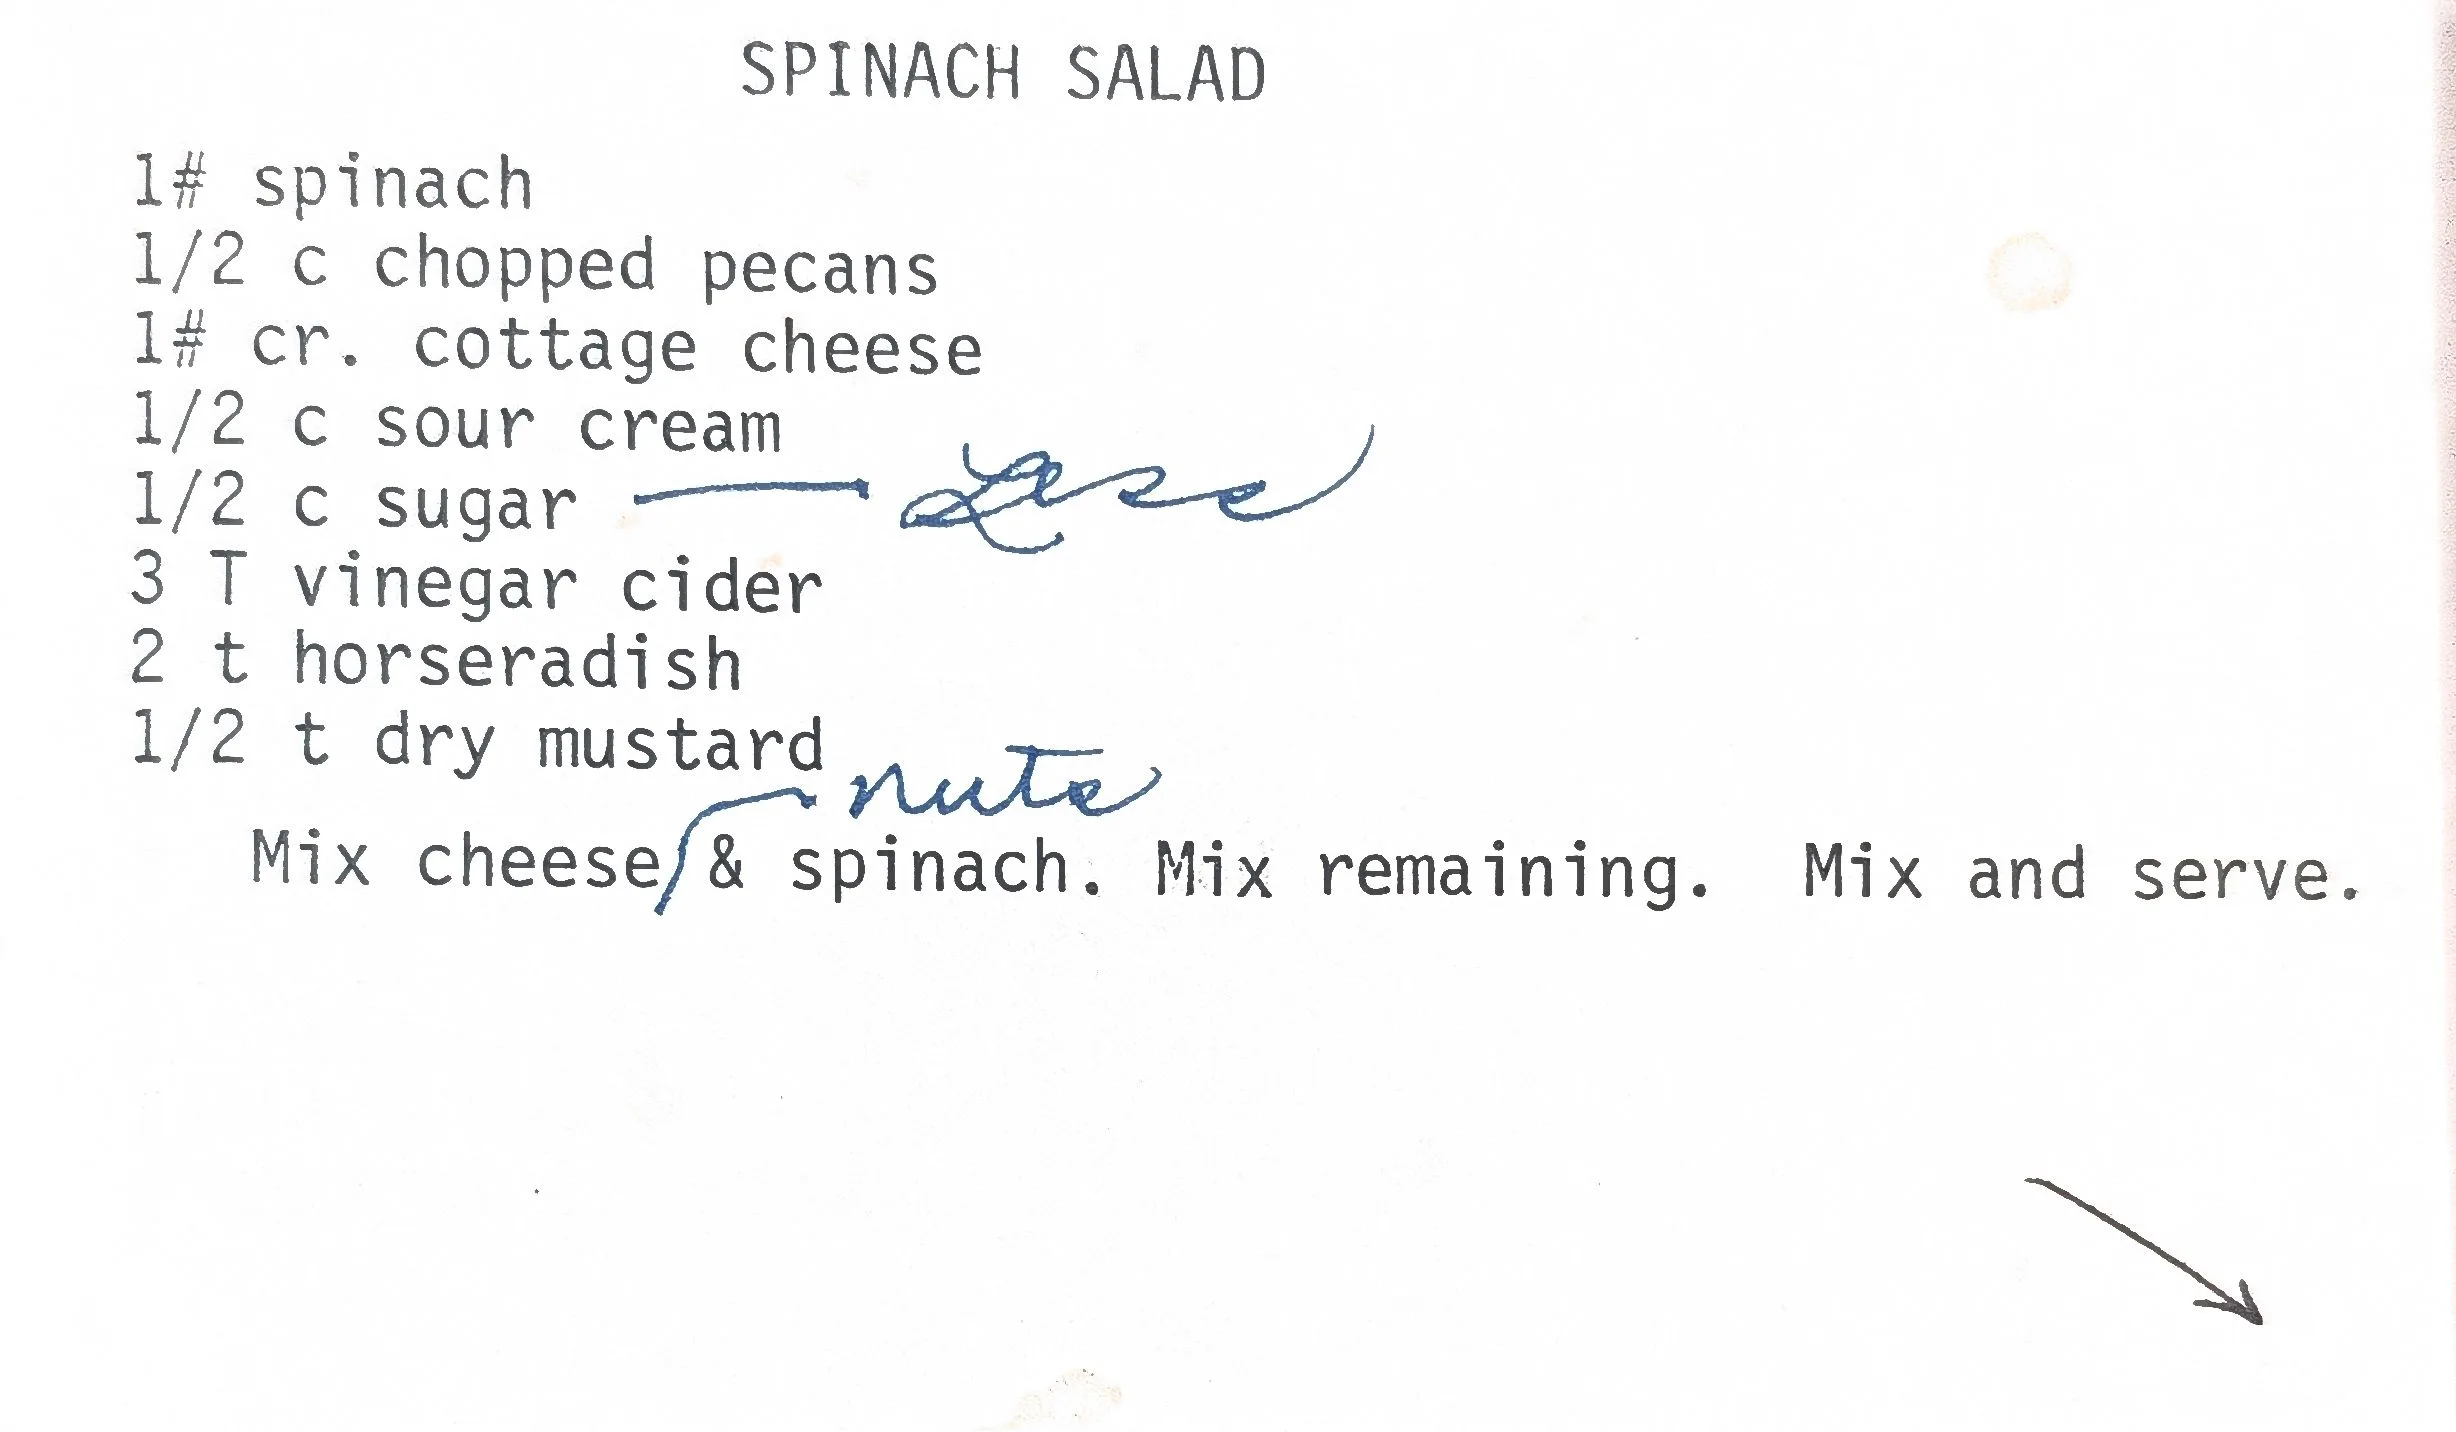 SPINACH SALAD
1# spinach
1/2 c chopped pecans
1# cr. cottage cheese
1/2 c sour cream
1/2 c sugar — Less
3 T vinegar cider
2 t horseradish
1/2 t dry mustard
nuts
Mix cheese & spinach. Mix remaining. Mix and serve.